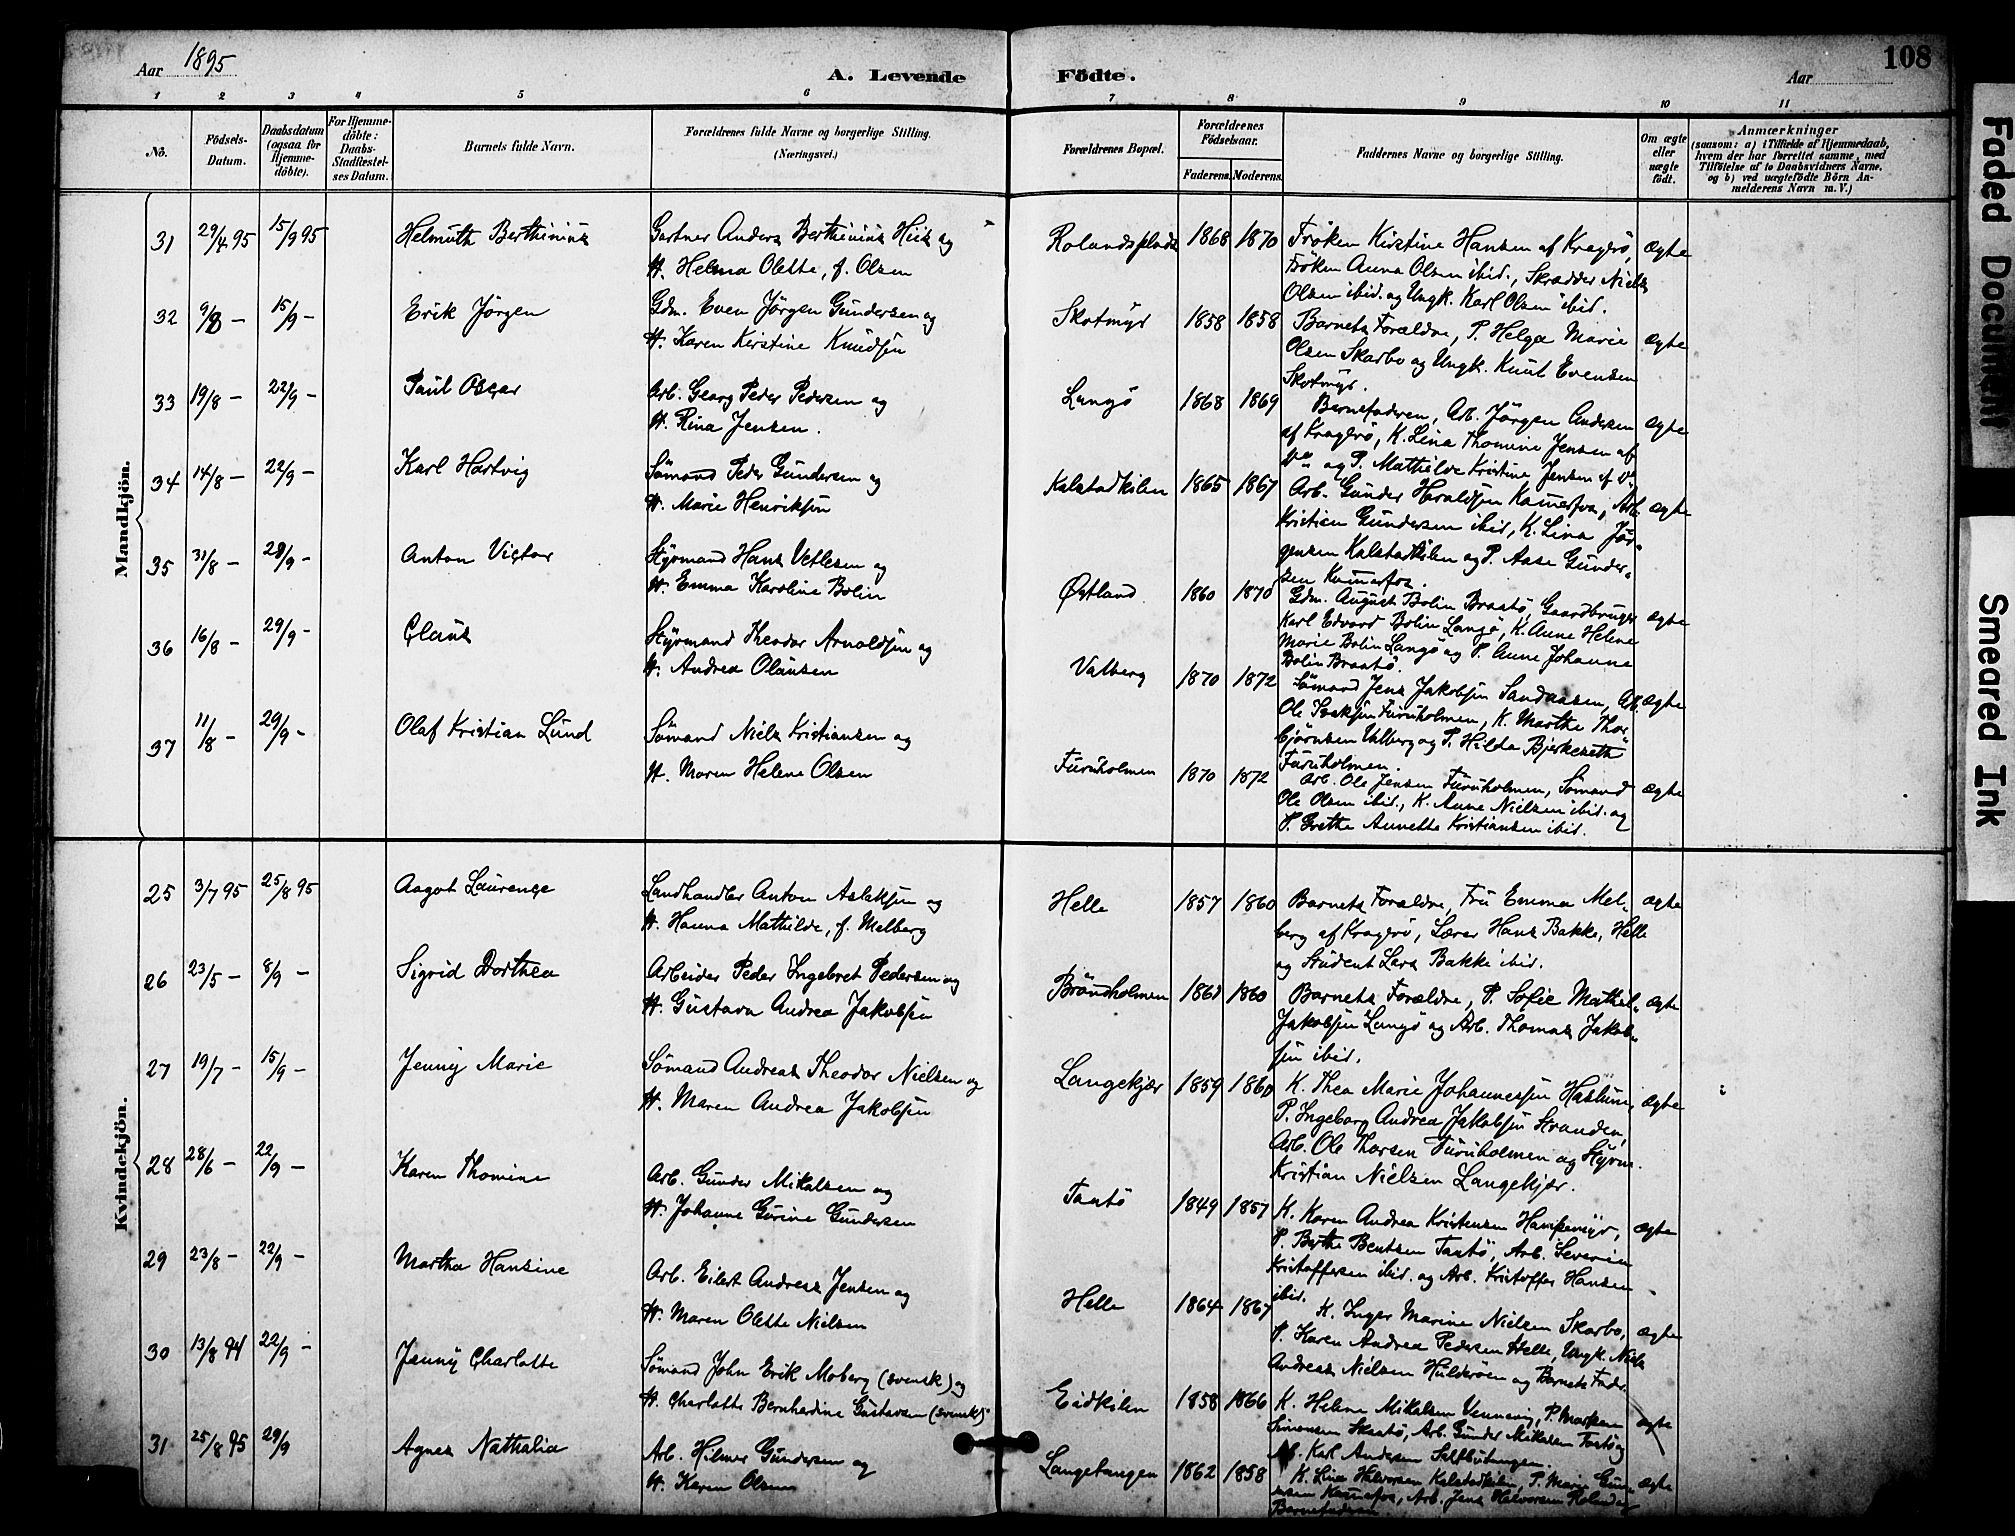 Aar 1895
A. Levende Födte.
Aar
108
1 2 3 4 5 6 7 8 9 10 11
No.
Födsels-Datum.
Daabsdatum (ogsaa for Hjemme-döbte).
For Hjemme-döbte: Daabs-Stadfæstel-ses Datum.
Barnets fulde Navn.
Forældrenes fulde Navne og borgerlige Stilling. (Næringsvei.)
Forældrenes Bopæl.
Forældrenes Födselsaar.
Faderens. Moderens.
Faddernes Navne og borgerlige Stilling.
Om ægte eller uægte født.
Anmærkninger
(saasom: a) i Tilfælde af Hjemmedaab, hvem der har forrettet samme, med Tilföielse af to Daabsvidners Navne, og b) ved uægtefödte Börn Anmelderens Navn m. V.)
Mandkjön.
31 29/4 95 15/9 95 Helmuth Berthinius Gartner Anders Berthinius Hiis og
H. Helma Olette, f. Olsen
Rolandsplads 1868 1870 Fröken Kirstine Hansen af Kragerö, ægte
Fröken Anna Olsen ibid., Skrædder Niels
Olsen ibid. og Ungk. Karl Olsen ibid.
32 9/8 – 15/9 – Erik Jörgen Gdm. Even Jörgen Gundersen og
H. Karen Kirstine Knudsen
Skotmyr 1858 1858 Barnets Forældre, P. Helga Marie ægte
Olsen Skarbo og Ungk. Knut Evensen
Skotmyr.
33 19/8 – 22/9 – Paul Oscar Arb. Georg Peder Pedersen og
H. Rina Jensen.
Langö 1868 1869 Barnefaderen, Arb. Jörgen Andersen ægte
af Kragerö, K. Lina Thomine Jensen af
og P. Mathilde Kristine Jensen af
34 14/8 – 22/9 – Karl Hartvig Sömand Peder Gundersen og
H. Marie Henriksen
Kalstadkilen 1865 1867 Arb. Gunder Haraldsen Kamerfos, Arb. ægte
Kristian Gundersen ibid, K. Lina Jör-
gensen Kalstadkilen og P. Aase Gunder-
sen Kamerfos.
35 31/8 – 29/9 – Anton Victor Styrmand Hans Vetlesen og
H. Emma Karoline Bolin
Østland 1860 1870 Gdm. August Bolin Braatö, Gaardbruger ægte
Karl Edvard Bolin Langö, K. Anne Helene
Marie Bolin Langö og P. Anne Johanne
Bolin Braatö.
36 16/8 – 29/9 – Claus Styrmand Theodor Arnoldsen og
H. Andrea Olausen
Valberg 1870 1872 Sömand Jens Jakobsen Sandaasen, Arb. ægte
Ole Isaksen Furuholmen, K. Marthe Thor-
björnsen Valberg og P. Hilda Bjerkeseth
Furuholmen.
37 11/8 – 29/9 – Olaf Kristian Lund Sömand Niels Kristiansen og
H. Maren Helene Olsen
Furuholmen 1870 1872 Arb. Ole Jensen Furuholmen, Sömand ægte
Ole Olsen ibid., K. Anne Nielsen ibid. og
P. Grethe Annette Kristiansen ibid.
Kvindekjön.
25 3/7 95 25/8 95 Aagot Laurence Landhandler Anton Aslaksen og
H. Hanna Mathilde, f. Melberg
Helle 1857 1860 Barnets Forældre, Fru Emma Mel- ægte
berg af Kragerö, Lærer Hans Bakke, Helle
og Student Lars Bakke ibid.
26 23/5 – 8/9 – Sigrid Dorthea Arbeider Peder Ingebret Pedersen og
H. Gustava Andrea Jakobsen
Bröndholmen 1860 Barnets Forældre, P. Sofie Mathil- ægte
Jakobsen Langö og Arb. Thomas Jakob-
sen ibid.
27 19/7 – 15/9 – Jenny Marie Sömand Andreas Theodor Nielsen og
H. Maren Andrea Jakobsen
Langekjær 1859 1860 K. Thea Marie Johannessen Haslum, ægte
P. Ingeborg Andrea Jakobsen Stranden,
Arb. Ole Thorsen Furuholmen og Styrm.
Kristian Nielsen Langekjær.
28 28/6 – 22/9 – Karen Thomine Arb. Gunder Mikalsen og
H. Johanne Gurine Gundersen
Taatö 1849 1857 K. Karen Andrea Kristensen Hampemyr, ægte
P. Berthe Bentsen Taatö, Arb. Severin
Kristoffersen ibid. og Arb. Kristoffer Hansen
ibid.
29 23/8 – 22/9 – Martha Hansine Arb. Eilert Andreas Jensen og
H. Maren Olette Nielsen
Helle 1864 1867 K. Inger Marine Nielsen Skarbo, ægte
P. Karen Andrea Pedersen Helle, Ungk. Niels
Andreas Nielsen Hulderöen og Barnets Fader.
30 13/8 94 22/9 – Jenny Charlotte Sömand John Erik Moberg (svensk) og
H. Charlotte Bernhardine Gustavsen (svensk)
Eidkilen 1858 1866 K. Helene Mikalsen Vennevig, P. Maren ægte
Simonsen Skaatö, Arb. Gunder Mikalsen Taatö og
Arb. Karl Andersen Saltbutangen.
31 25/8 95 29/9 Agnes Nathalia Arb. Hilmer Gundersen og
H. Karen Olsen
Langetangen 1862 1858 K. Lina Halvorsen Kalstadkilen, P. Marie Gun- ægte
dersen Kamerfos, Arb. Jens Halvorsen Roland og
Barnefaderen.
Faded Document
Smeared Ink